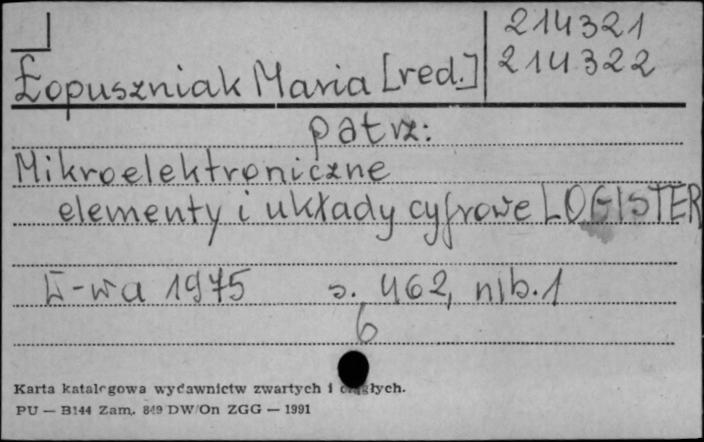 214321
Łopuszniak Maria [red.] 214322
patrz:
Mikroelektroniczne
elementy i układy cyfrowe LOGISTER
W-wa 1975 s. 462, nlb.1
6
Karta katalogowa wydawnictw zwartych i ciągłych.
PU — B144 Zam. 849 DW/On ZGG — 1991